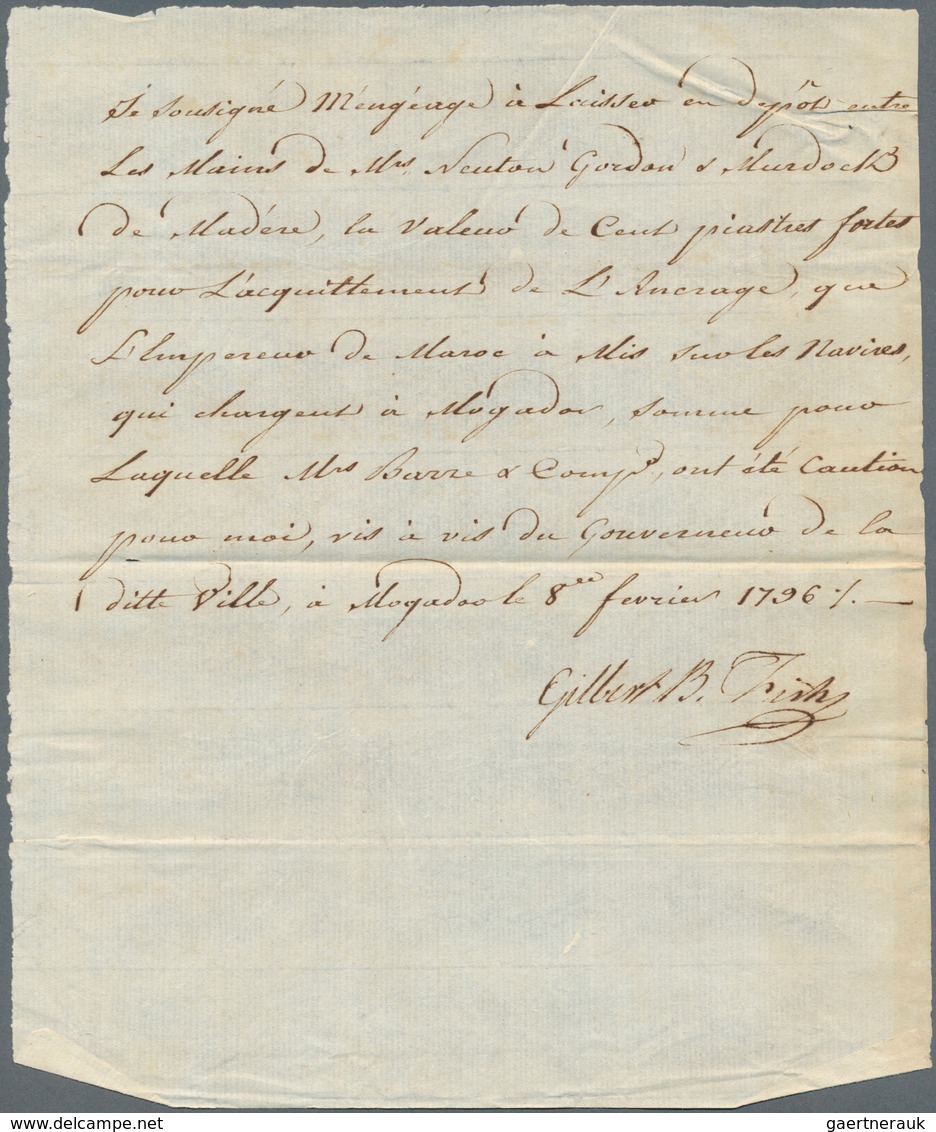 Je sousigné Méngéage à Laisser en depôt entre
Les Mains de Mrs. Neuton Gordon & Murdock
de Madére, la Valeur de Cent piastres fortes
pour L'acquittement de L'Ancrage, que
L'Empereur de Maroc à Mis sur les Navires,
qui chargent à Mogador, somme pour
Laquelle Mrs Barre & Comp., ont été Caution
pour moi, vis à vis du Gouverneur de la
ditte Ville, à Mogador le 8 fevrier 1796 ./. —
Gilbert B. Fish
gaertnerauk